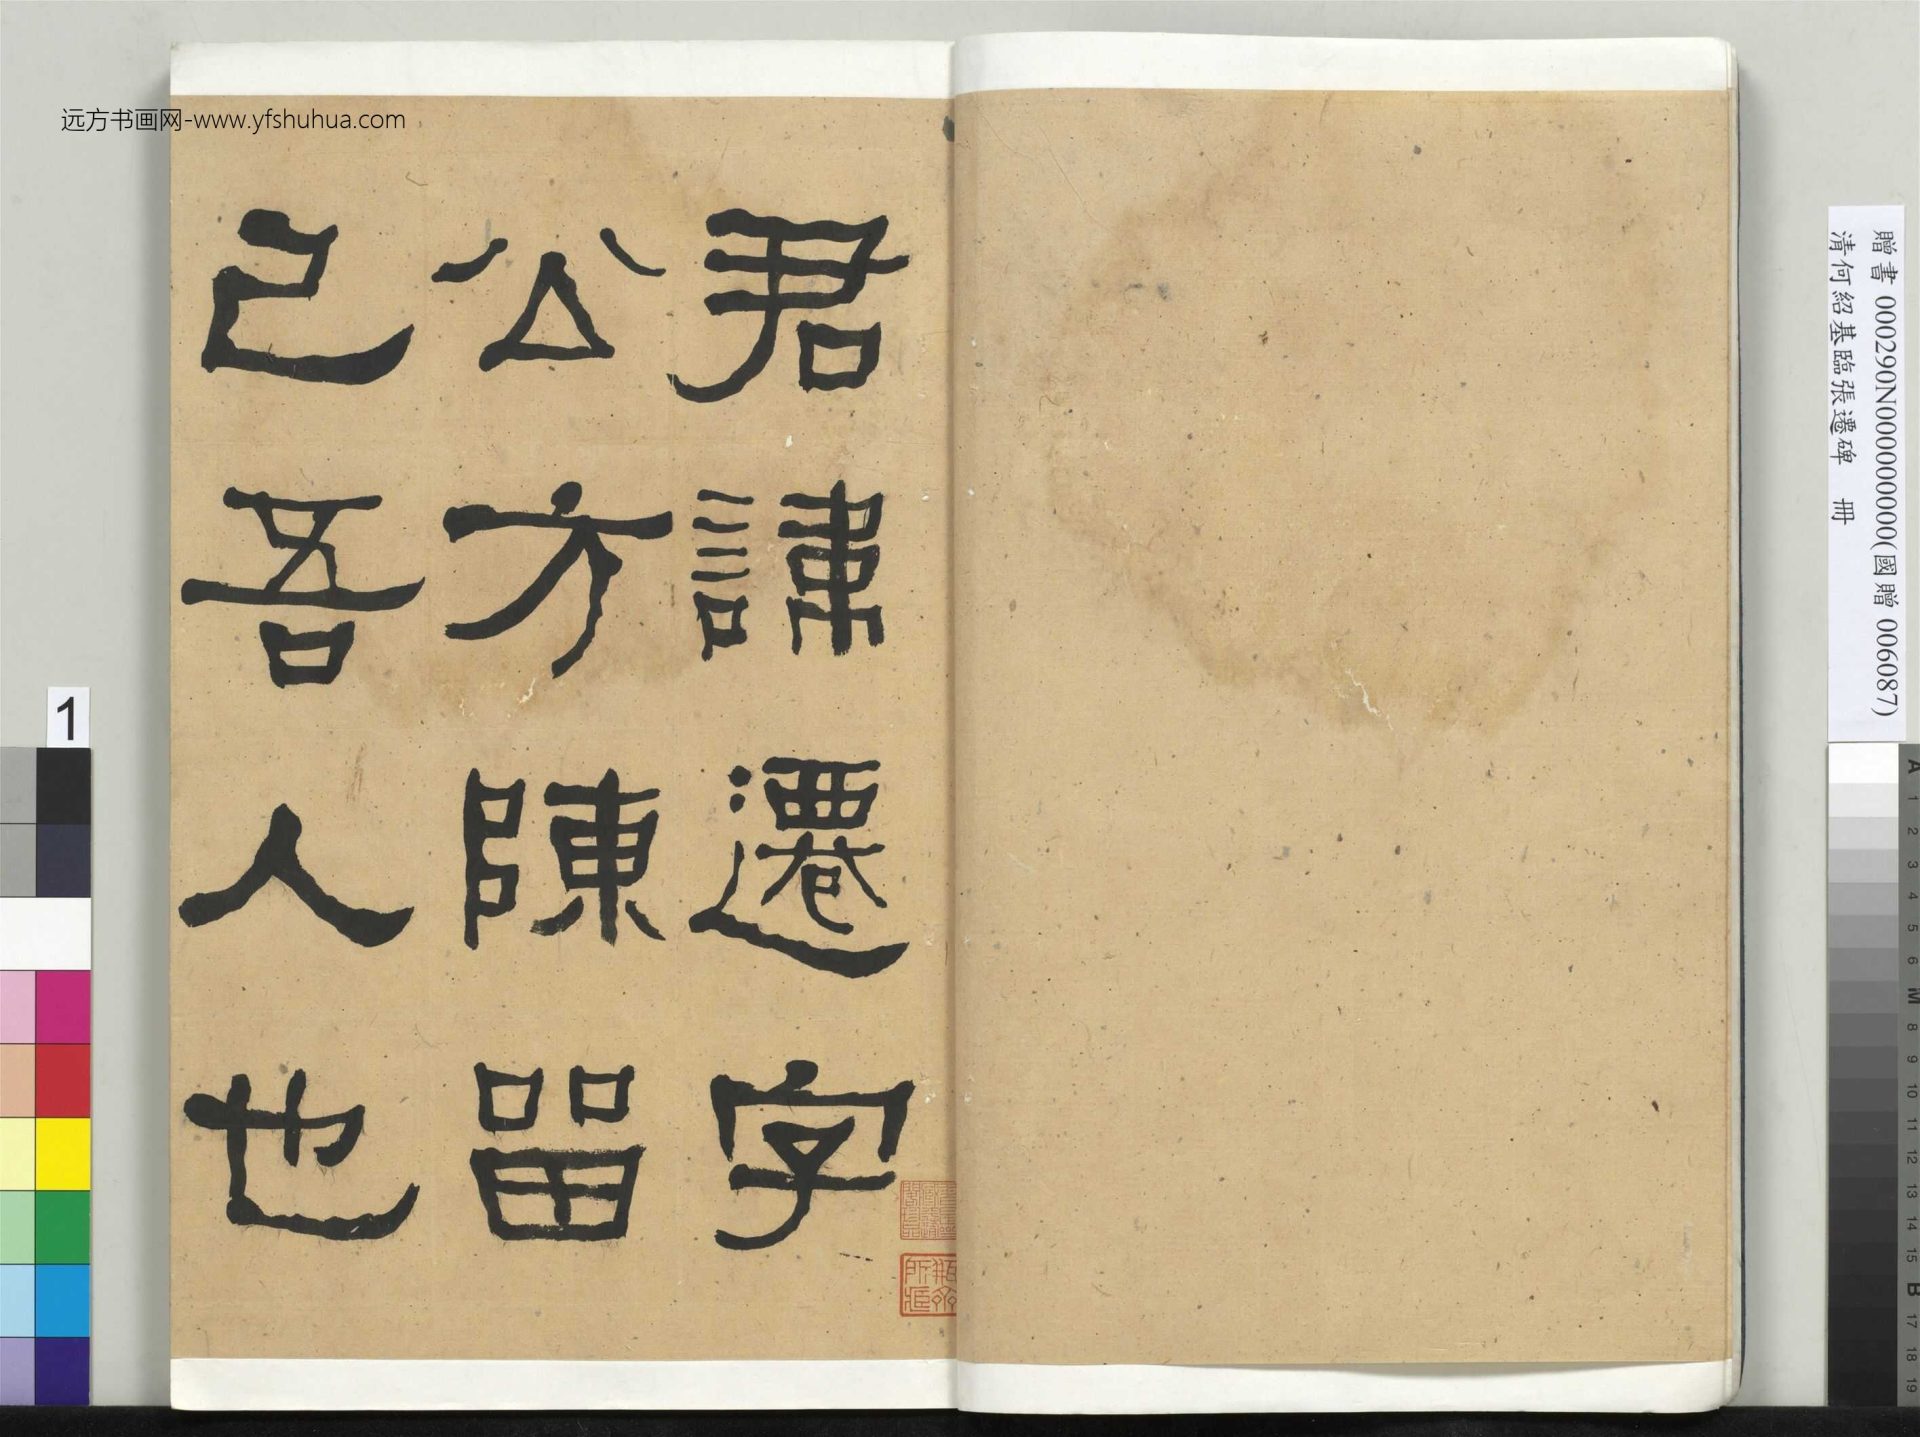 君諱遷字
公方陳留
己吾人也
远方书画网-www.yfshuhua.com
贈書 000290N000000000(國贈 006087)
清何紹基臨張遷碑 冊
1
A
1
2
3
4
5
6
M
8
9
10
11
12
13
14
15
B
17
18
19